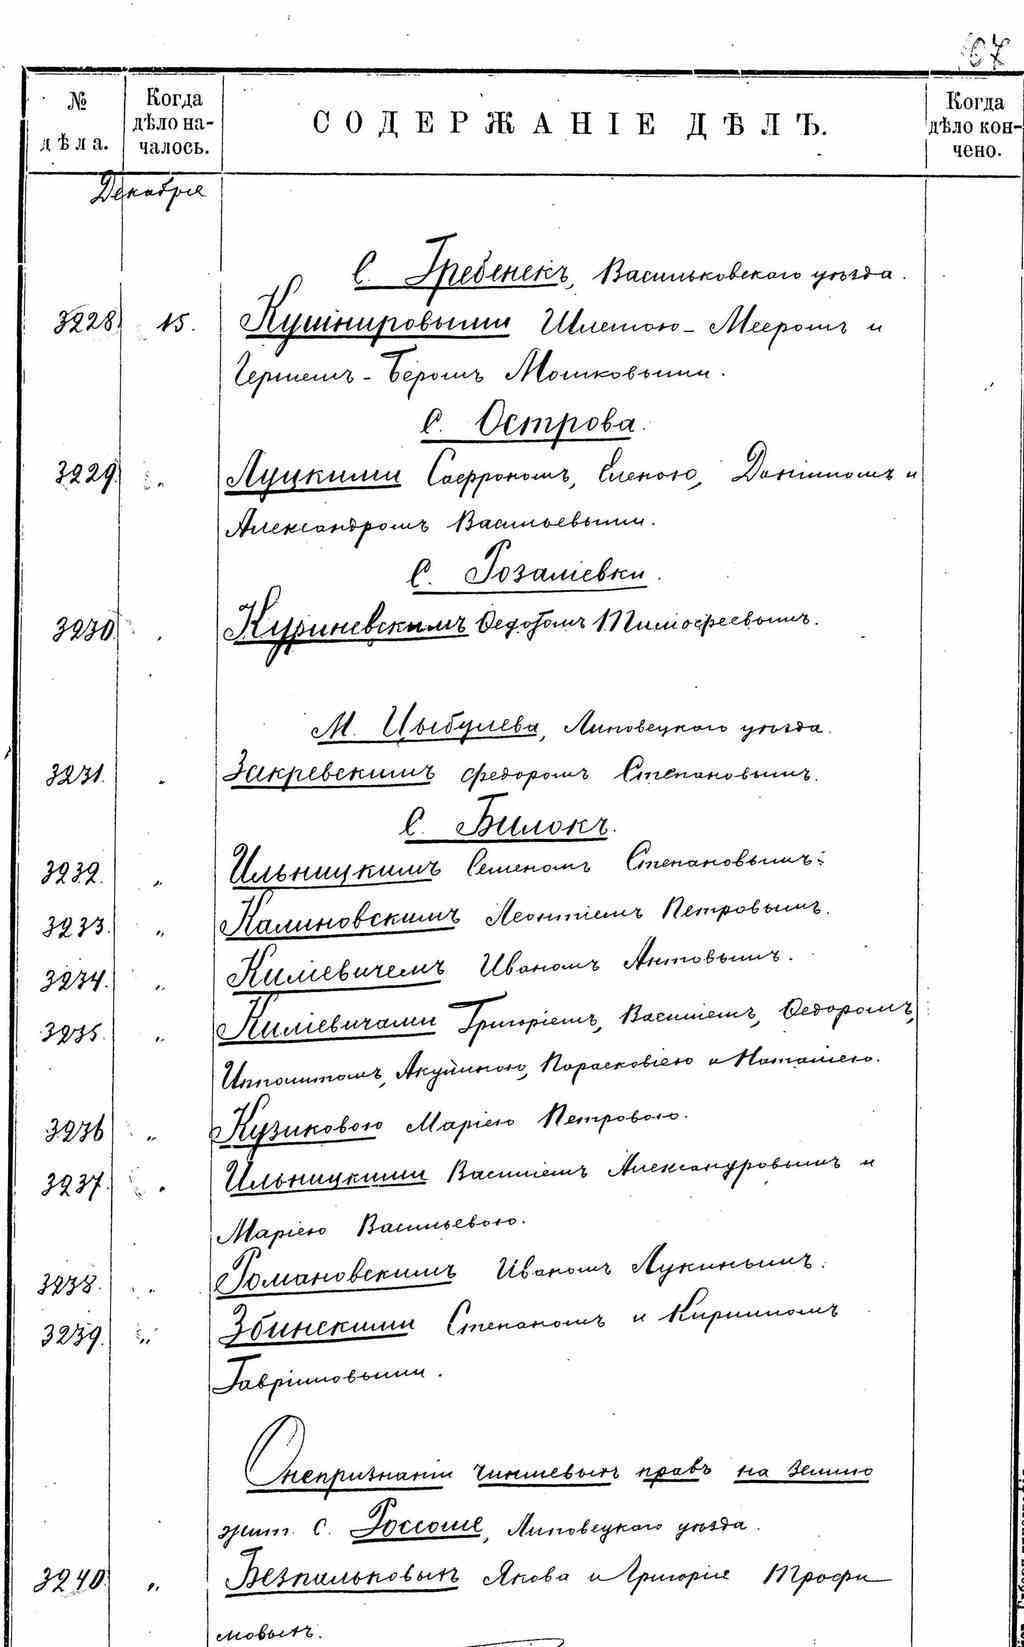 67
№ дѣла. Когда дѣло началось. СОДЕРЖАНІЕ ДѢЛЪ. Когда дѣло кончено.
Декабря
С. Гребенекъ, Васильковскаго уѣзда.
3228 15. Кушнировыми Шлемою-Мееромъ и
Гершемъ-Беромъ Мошковыми.
С. Острова.
3229 " Луцкими Сафрономъ, Еленою, Даніиломъ и
Александромъ Васильевыми.
С. Розаліевки.
3230 " Куриневскимъ Ѳедотомъ Тимофеевымъ.
М. Цыбулева, Липовецкаго уѣзда.
3231. " Закревскимъ Федоромъ Степановымъ.
С. Билокъ.
3232. " Ильницкимъ Семеномъ Степановымъ.
3233. " Калиновскимъ Леонтіемъ Петровымъ.
3234. " Киліевичемъ Иваномъ Антовымъ.
3235. " Киліевичами Григоріемъ, Василіемъ, Ѳедоромъ,
Ипполитомъ, Акулиною, Парасковіею и Наталіею.
3236 " Кузиковою Маріею Петровою.
3237. " Ильницкими Василіемъ Александровымъ и
Маріею Васильевою.
3238. " Романовскимъ Иваномъ Лукинымъ.
3239. " Збинскими Степаномъ и Кирилломъ
Гавріиловыми.
О непризнаніи чиншевыхъ правъ на землю
жит. с. Россоше, Липовецкаго уѣзда.
3240 " Безпальковыхъ Якова и Григорія Трофи
мовыхъ.